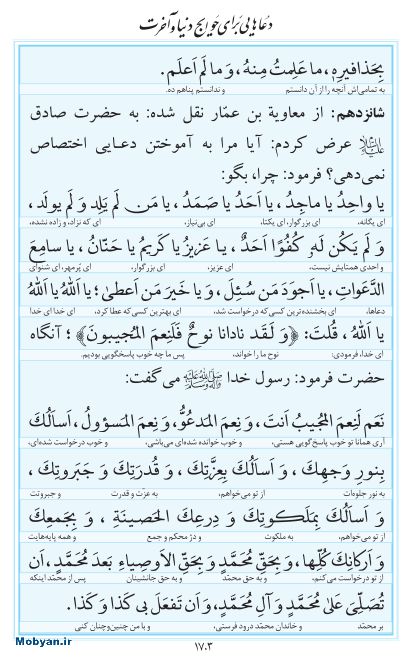 دعاهایی برای حوایج دنیا و آخرت
بِحَذافیرِهِ، ما عَلِمتُ مِنهُ، وَ ما لَم اَعلَم.
به تمامی‌اش آنچه را از آن دانستم و ندانستم پناهم ده.
شانزدهم: از معاویة بن عمّار نقل شده: به حضرت صادق
علیه السلام عرض کردم: آیا مرا به آموختن دعایی اختصاص
نمی‌دهی؟ فرمود: چرا، بگو:
یا واحِدُ یا ماجِدُ، یا اَحَدُ یا صَمَدُ، یا مَن لَم یَلِد وَ لَم یولَد،
ای یگانه، ای بزرگوار، ای یکتا، ای بی‌نیاز، ای که نزاد، و زاده نشده،
وَ لَم یَکُن لَهُ کُفُوًا اَحَدٌ، یا عَزیزُ یا کَریمُ یا حَنّانُ، یا سامِعَ
و احدی همتایش نیست، ای عزیز، ای بزرگوار، ای پرمهر، ای شنوای
الدَّعَواتِ، یا اَجوَدَ مَن سُئِلَ، وَ یا خَیرَ مَن اَعطی؛ یا اَللهُ یا اَللهُ
دعاها، ای بخشنده‌ترین کسی که درخواست شد، ای بهترین کسی که عطا کرد، ای خدا ای خدا
یا اَللهُ، قُلتَ: ﴿وَ لَقَد نادانا نوحٌ فَلَنِعمَ المُجیبونَ﴾؛ آنگاه
ای خدا، فرمودی: نوح ما را خواند، پس ما چه خوب پاسخگویی بودیم.
حضرت فرمود: رسول خدا صلی الله علیه وآله می‌گفت:
نَعَم لَنِعمَ المُجیبُ اَنتَ، وَ نِعمَ المَدعُوُّ، وَ نِعمَ المَسؤولُ، اَسأَلُكَ
آری همانا تو خوب پاسخ‌گویی هستی، و خوب خوانده شده‌ای می‌باشی، و خوب درخواست شده‌ای.
بِنورِ وَجهِكَ، وَ اَسأَلُكَ بِعِزَّتِكَ، وَ قُدرَتِكَ وَ جَبَروتِكَ،
به نور جلوه‌ات از تو می‌خواهم، به عزت و قدرت و جبروتت
وَ اَسأَلُكَ بِمَلَکوتِكَ وَ دِرعِكَ الحَصینَةِ، وَ بِجَمعِكَ
از تو می‌خواهم، به ملکوت و دژ محکم و جمع و همه پایه‌هایت
وَ اَرکانِكَ کُلِّها، وَ بِحَقِّ مُحَمَّدٍ وَ بِحَقِّ الاَوصِیاءِ بَعدَ مُحَمَّدٍ، اَن
از تو درخواست می‌کنم، به حق محمّد و به حق جانشینان پس از محمّد اینکه
تُصَلِّیَ عَلی مُحَمَّدٍ وَ آلِ مُحَمَّدٍ، وَ اَن تَفعَلَ بی کَذا وَ کَذا.
بر محمّد و خاندان محمّد درود فرستی، و با من چنین‌وچنان کنی
Mobyan.ir
۱۷۰۳